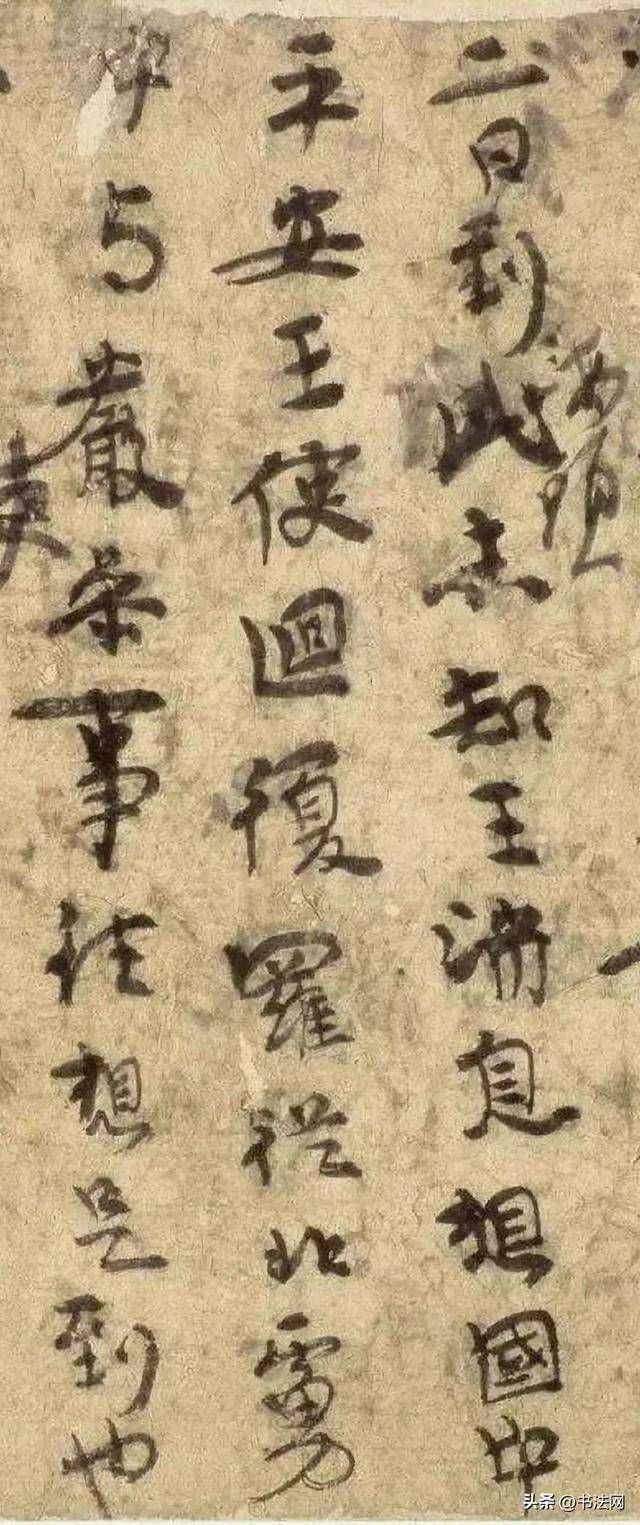 二日到此海頭未知王消息想國中
平安王使迴復羅從北虜
中与嚴參事往想是到也
頭条 @书法网